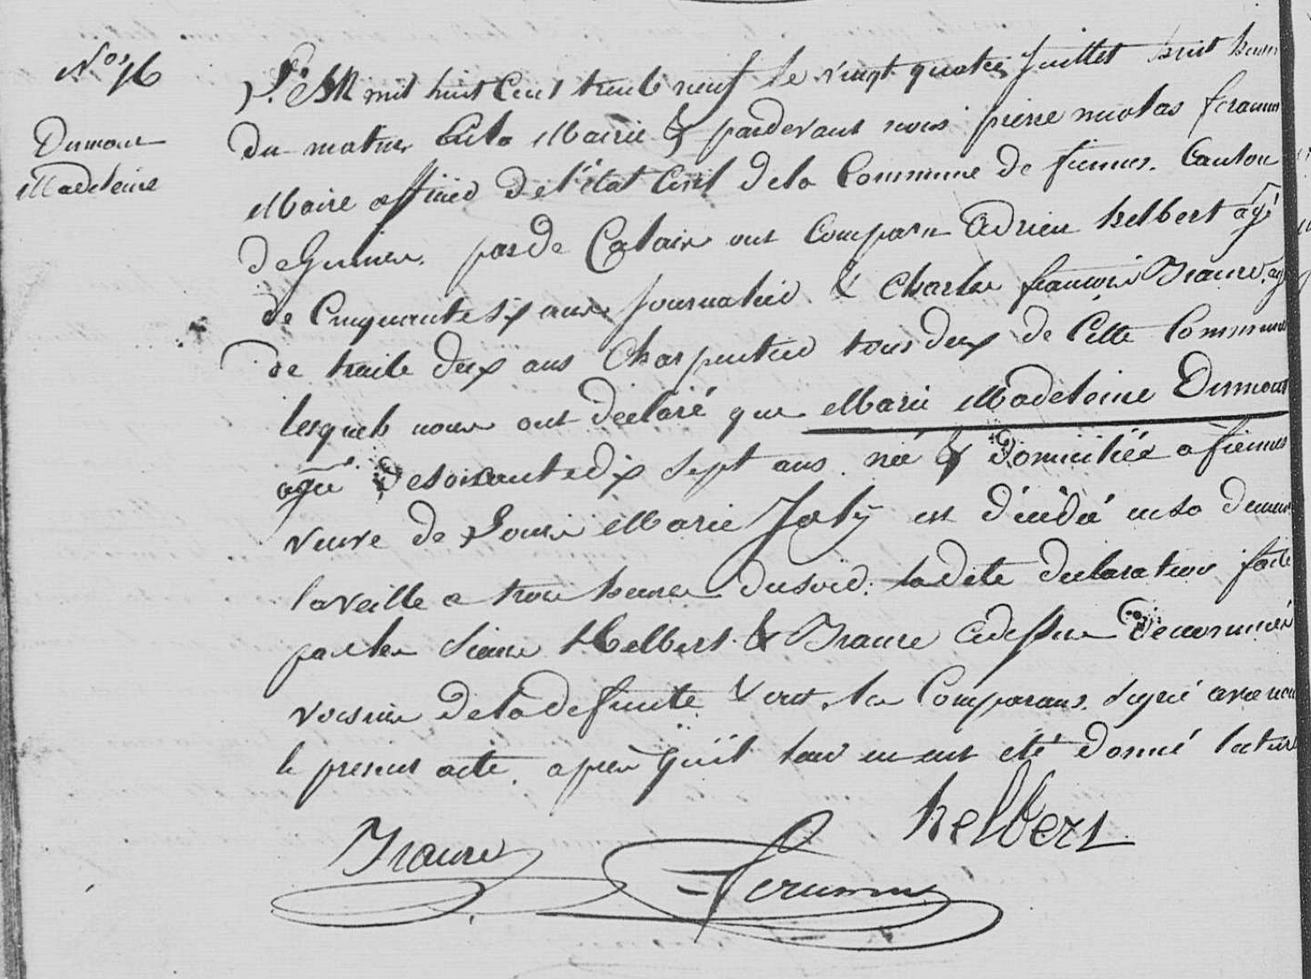 No 16
Dumont
Madeleine
L'an mil huit Cent trente neuf le vingt quatre juillet huit heures
du matin à la Mairie & pardevant nous pierre nicolas
Maire officier de l'état Civil dela Commune de fiennes. Canton
de Guines. pas de Calais ont Comparu Adrien helbert agé
de Cinquante six ans journalier & Charles françois
de trente deux ans Charpentier tous deux de Cette Commune
lesquels nous ont déclaré que Marie Madeleine Dumont
agée de soixante dix sept ans née & Domiciliée a fiennes
veuve de Louis Marie Joly est décédée en sa demeure
la veille a trois heures du soir. ladite declaration faite
par les sieurs Helbert & ci dessus denommés
voisins dela defunte & ont les Comparans signé avec nous
le present acte. après qu'il leur en eut été donné lecture
helbert